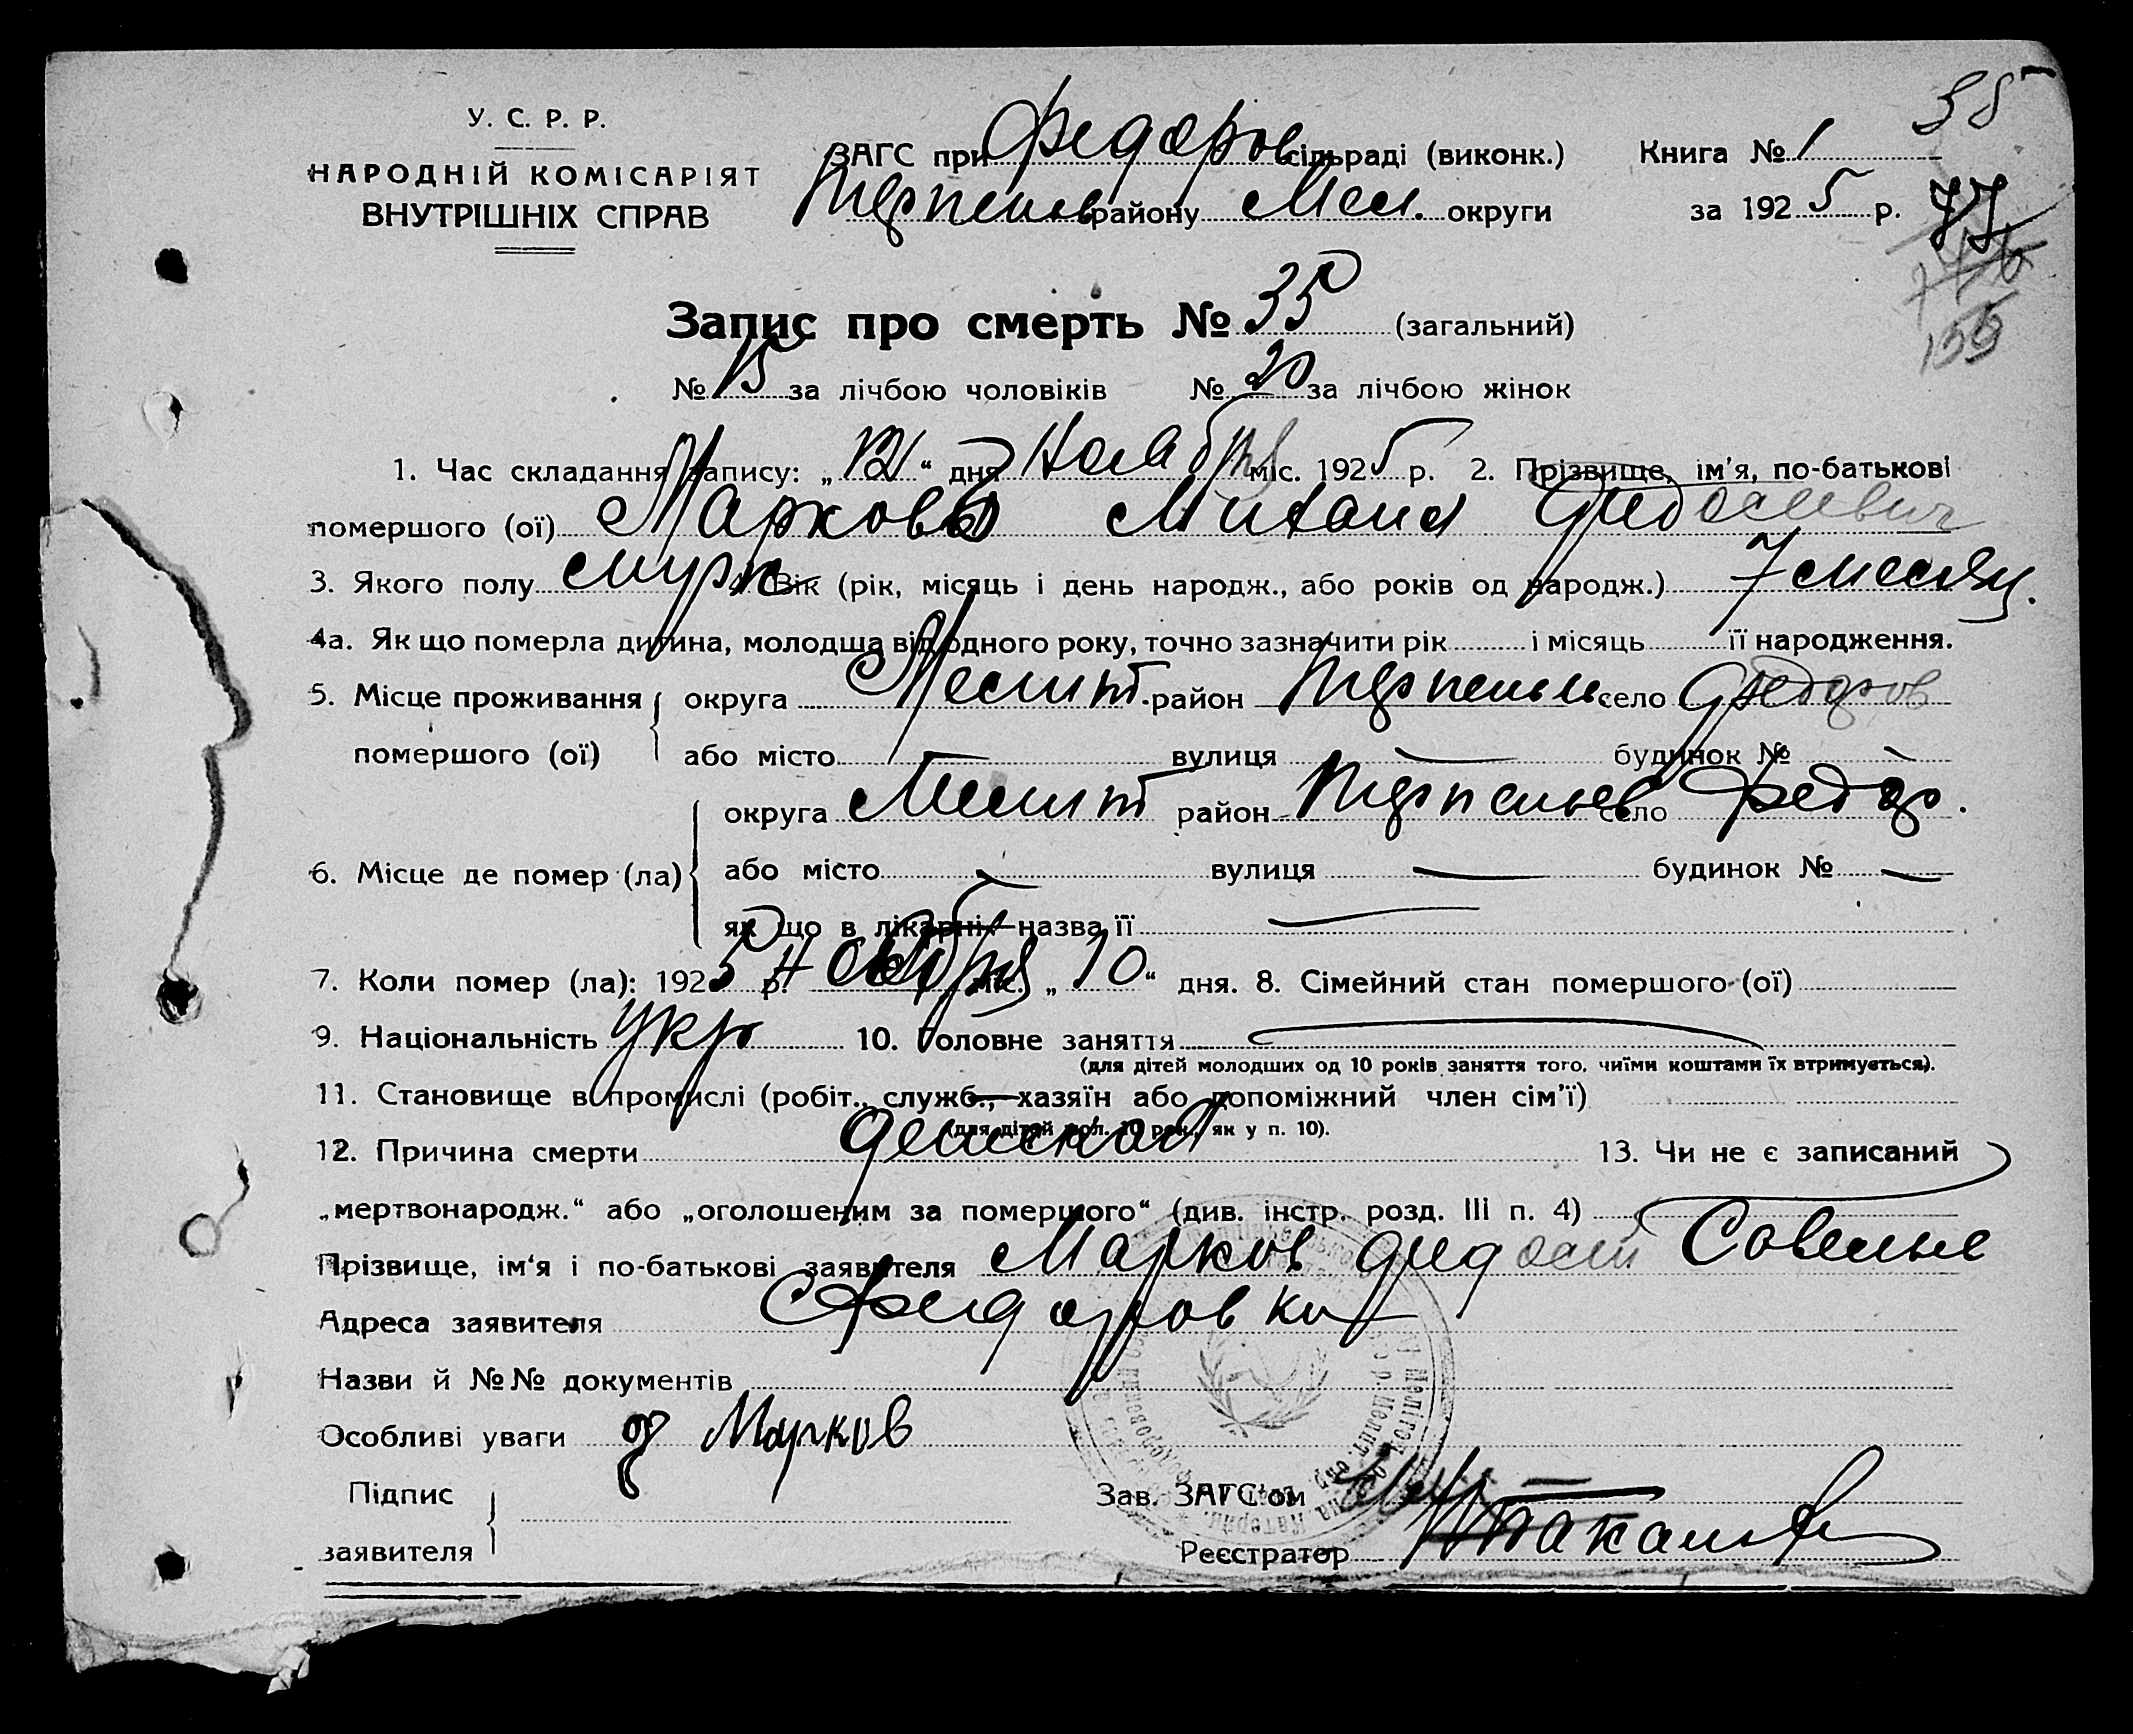 35
У. С. Р. Р.
НАРОДНІЙ КОМІСАРІЯТ
ВНУТРІШНІХ СПРАВ
ЗАГС при Федоров сільраді (виконк.) Книга № 1
Терпеньев району Мел. округи за 1925 р. 77
Запис про смерть № 35 (загальний)
№ 15 за лічбою чоловіків № 20 за лічбою жінок
1. Час складання запису: „12“ дня Ноября міс. 1925 р. 2. Прізвище, ім'я, по-батькові
помершого (ої) Марков Михаил Федосиевич
3. Якого полу муж 4. Вік (рік, місяць і день народж., або років од народж.) 7 месяц.
4а. Як що померла дитина, молодша від одного року, точно зазначити рік і місяць її народження.
5. Місце проживання помершого (ої) округа Мелит. район Терпеньев село Федоров
або місто вулиця — будинок № —
6. Місце де помер (ла) округа Мелит район Терпеньев село Федор.
або місто вулиця — будинок № —
як що в лікарні назва її —
7. Коли помер (ла): 1925 р. міс. „10“ дня. 8. Сімейний стан помершого (ої)
9. Національність Укр 10. Головне заняття —
(для дітей молодших од 10 років заняття того, чиїми коштами їх втримується).
11. Становище в промислі (робіт., служб., хазяїн або допоміжний член сім'ї)
(для дітей мол. 10 рок., як у п. 10).
12. Причина смерти 13. Чи не є записаний
„мертвонародж.“ або „оголошеним за помершого“ (див. інстр. розд. III п. 4)
Прізвище, ім'я і по-батькові заявителя Марков Федосий Савелье
Адреса заявителя Федоровка
Назви й №№ документів
Особливі уваги Ф Марков
Підпис
заявителя
Зав. ЗАГС'ом
Реєстратор